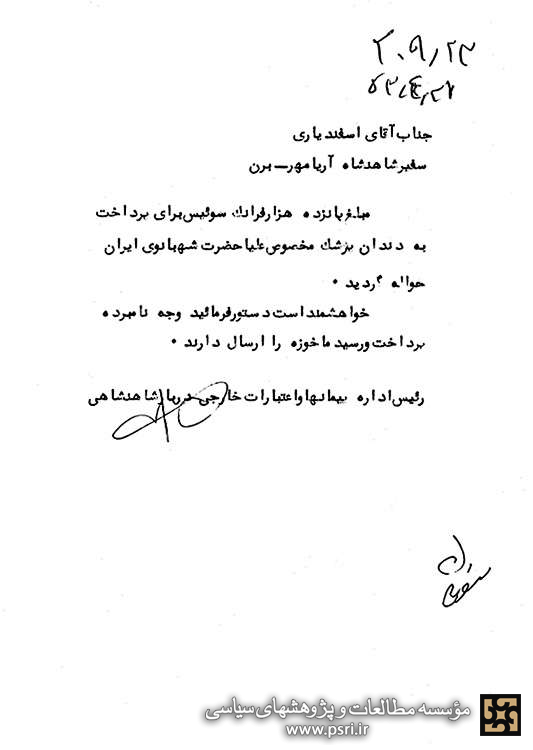 ۲۰۹/۲۳
جناب آقای اسفندیاری
سفیر شاهنشاه آریامهر — برن
مبلغ پانزده هزار فرانك سوئیس برای پرداخت
به دندان پزشك مخصوص علیاحضرت شهبانوی ایران
حواله گردید .
خواهشمند است دستور فرمائید وجه نامبرده
پرداخت و رسید ماخوذه را ارسال دارند .
رئیس اداره پیمانها و اعتبارات خارجی دربار شاهنشاهی
مؤسسه مطالعات و پژوهشهای سیاسی
www.psri.ir